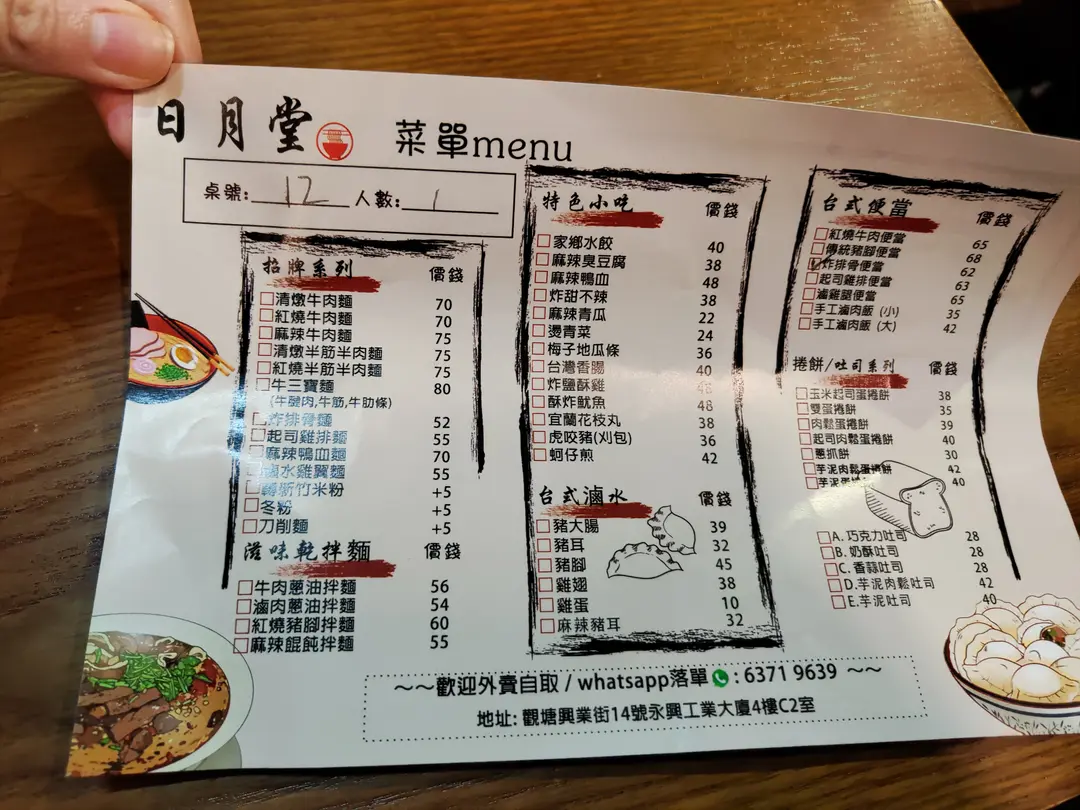 日月堂
菜單menu
桌號: 12 人數: 1
招牌系列 價錢
清燉牛肉麵 70
紅燒牛肉麵 70
麻辣牛肉麵 75
清燉半筋半肉麵 75
紅燒半筋半肉麵 75
牛三寶麵 80
(牛腱肉,牛筋,牛肋條)
炸排骨麵 52
起司雞排麵 55
麻辣鴨血麵 70
滷水雞翼麵 55
轉新竹米粉 +5
冬粉 +5
刀削麵 +5
滋味乾拌麵 價錢
牛肉蔥油拌麵 56
滷肉蔥油拌麵 54
紅燒豬腳拌麵 60
麻辣餛飩拌麵 55
特色小吃 價錢
家鄉水餃 40
麻辣臭豆腐 38
麻辣鴨血 48
炸甜不辣 38
麻辣青瓜 22
燙青菜 24
梅子地瓜條 36
台灣香腸 40
炸鹽酥雞 48
酥炸魷魚 48
宜蘭花枝丸 38
虎咬豬(刈包) 36
蚵仔煎 42
台式滷水 價錢
豬大腸 39
豬耳 32
豬腳 45
雞翅 38
雞蛋 10
麻辣豬耳 32
台式便當 價錢
紅燒牛肉便當 65
傳統豬腳便當 68
炸排骨便當 62
起司雞排便當 63
滷雞腿便當 65
手工滷肉飯 (小) 35
手工滷肉飯 (大) 42
捲餅/吐司系列 價錢
玉米起司蛋捲餅 38
雙蛋捲餅 35
肉鬆蛋捲餅 39
起司肉鬆蛋捲餅 40
蔥抓餅 30
芋泥肉鬆蛋捲餅 42
芋泥蛋捲餅 40
A. 巧克力吐司 28
B. 奶酥吐司 28
C. 香蒜吐司 28
D.芋泥肉鬆吐司 42
E.芋泥吐司 40
～～歡迎外賣自取 / whatsapp落單 : 6371 9639 ～～
地址: 觀塘興業街14號永興工業大廈4樓C2室